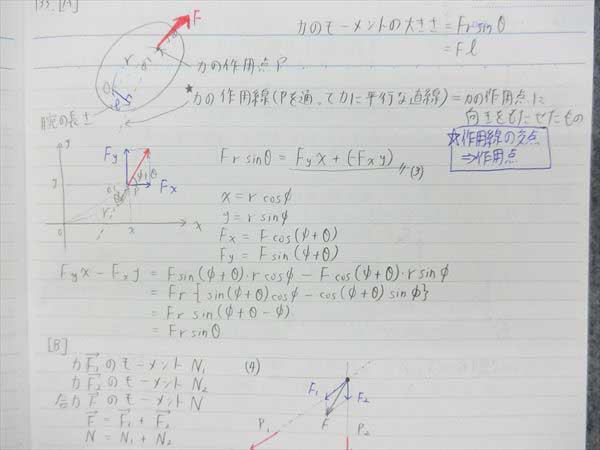 [A]
F
力のモーメントの大きさ = Fr sinθ
= Fl
r
O
l
力の作用点 P
★力の作用線(Pを通って力に平行な直線) = 力の作用点に
向きをもたせたもの
腕の長さ
☆作用線の交点
⇒作用点
y
Fy
Fx
P
x
x
Fr sinθ = Fy x + (-Fx y) (3)
x = r cosφ
y = r sinφ
Fx = F cos(φ+θ)
Fy = F sin(φ+θ)
Fy x - Fx y = F sin(φ+θ)・r cosφ - F cos(φ+θ)・r sinφ
= Fr { sin(φ+θ) cosφ - cos(φ+θ) sinφ}
= Fr sin(φ+θ-φ)
= Fr sinθ
[B]
力F₁のモーメント N₁ (4)
力F₂のモーメント N₂
合力Fのモーメント N
F = F₁ + F₂
N = N₁ + N₂
F₁
F₂
F
P₁
P₂